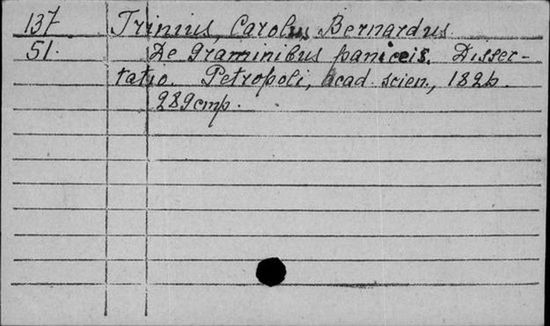 137 Trinius, Carolus Bernardus
51. De Graminibus paniceis. Disser-
tatio. Petropoli, Acad. scien., 1826.
289 cmp.